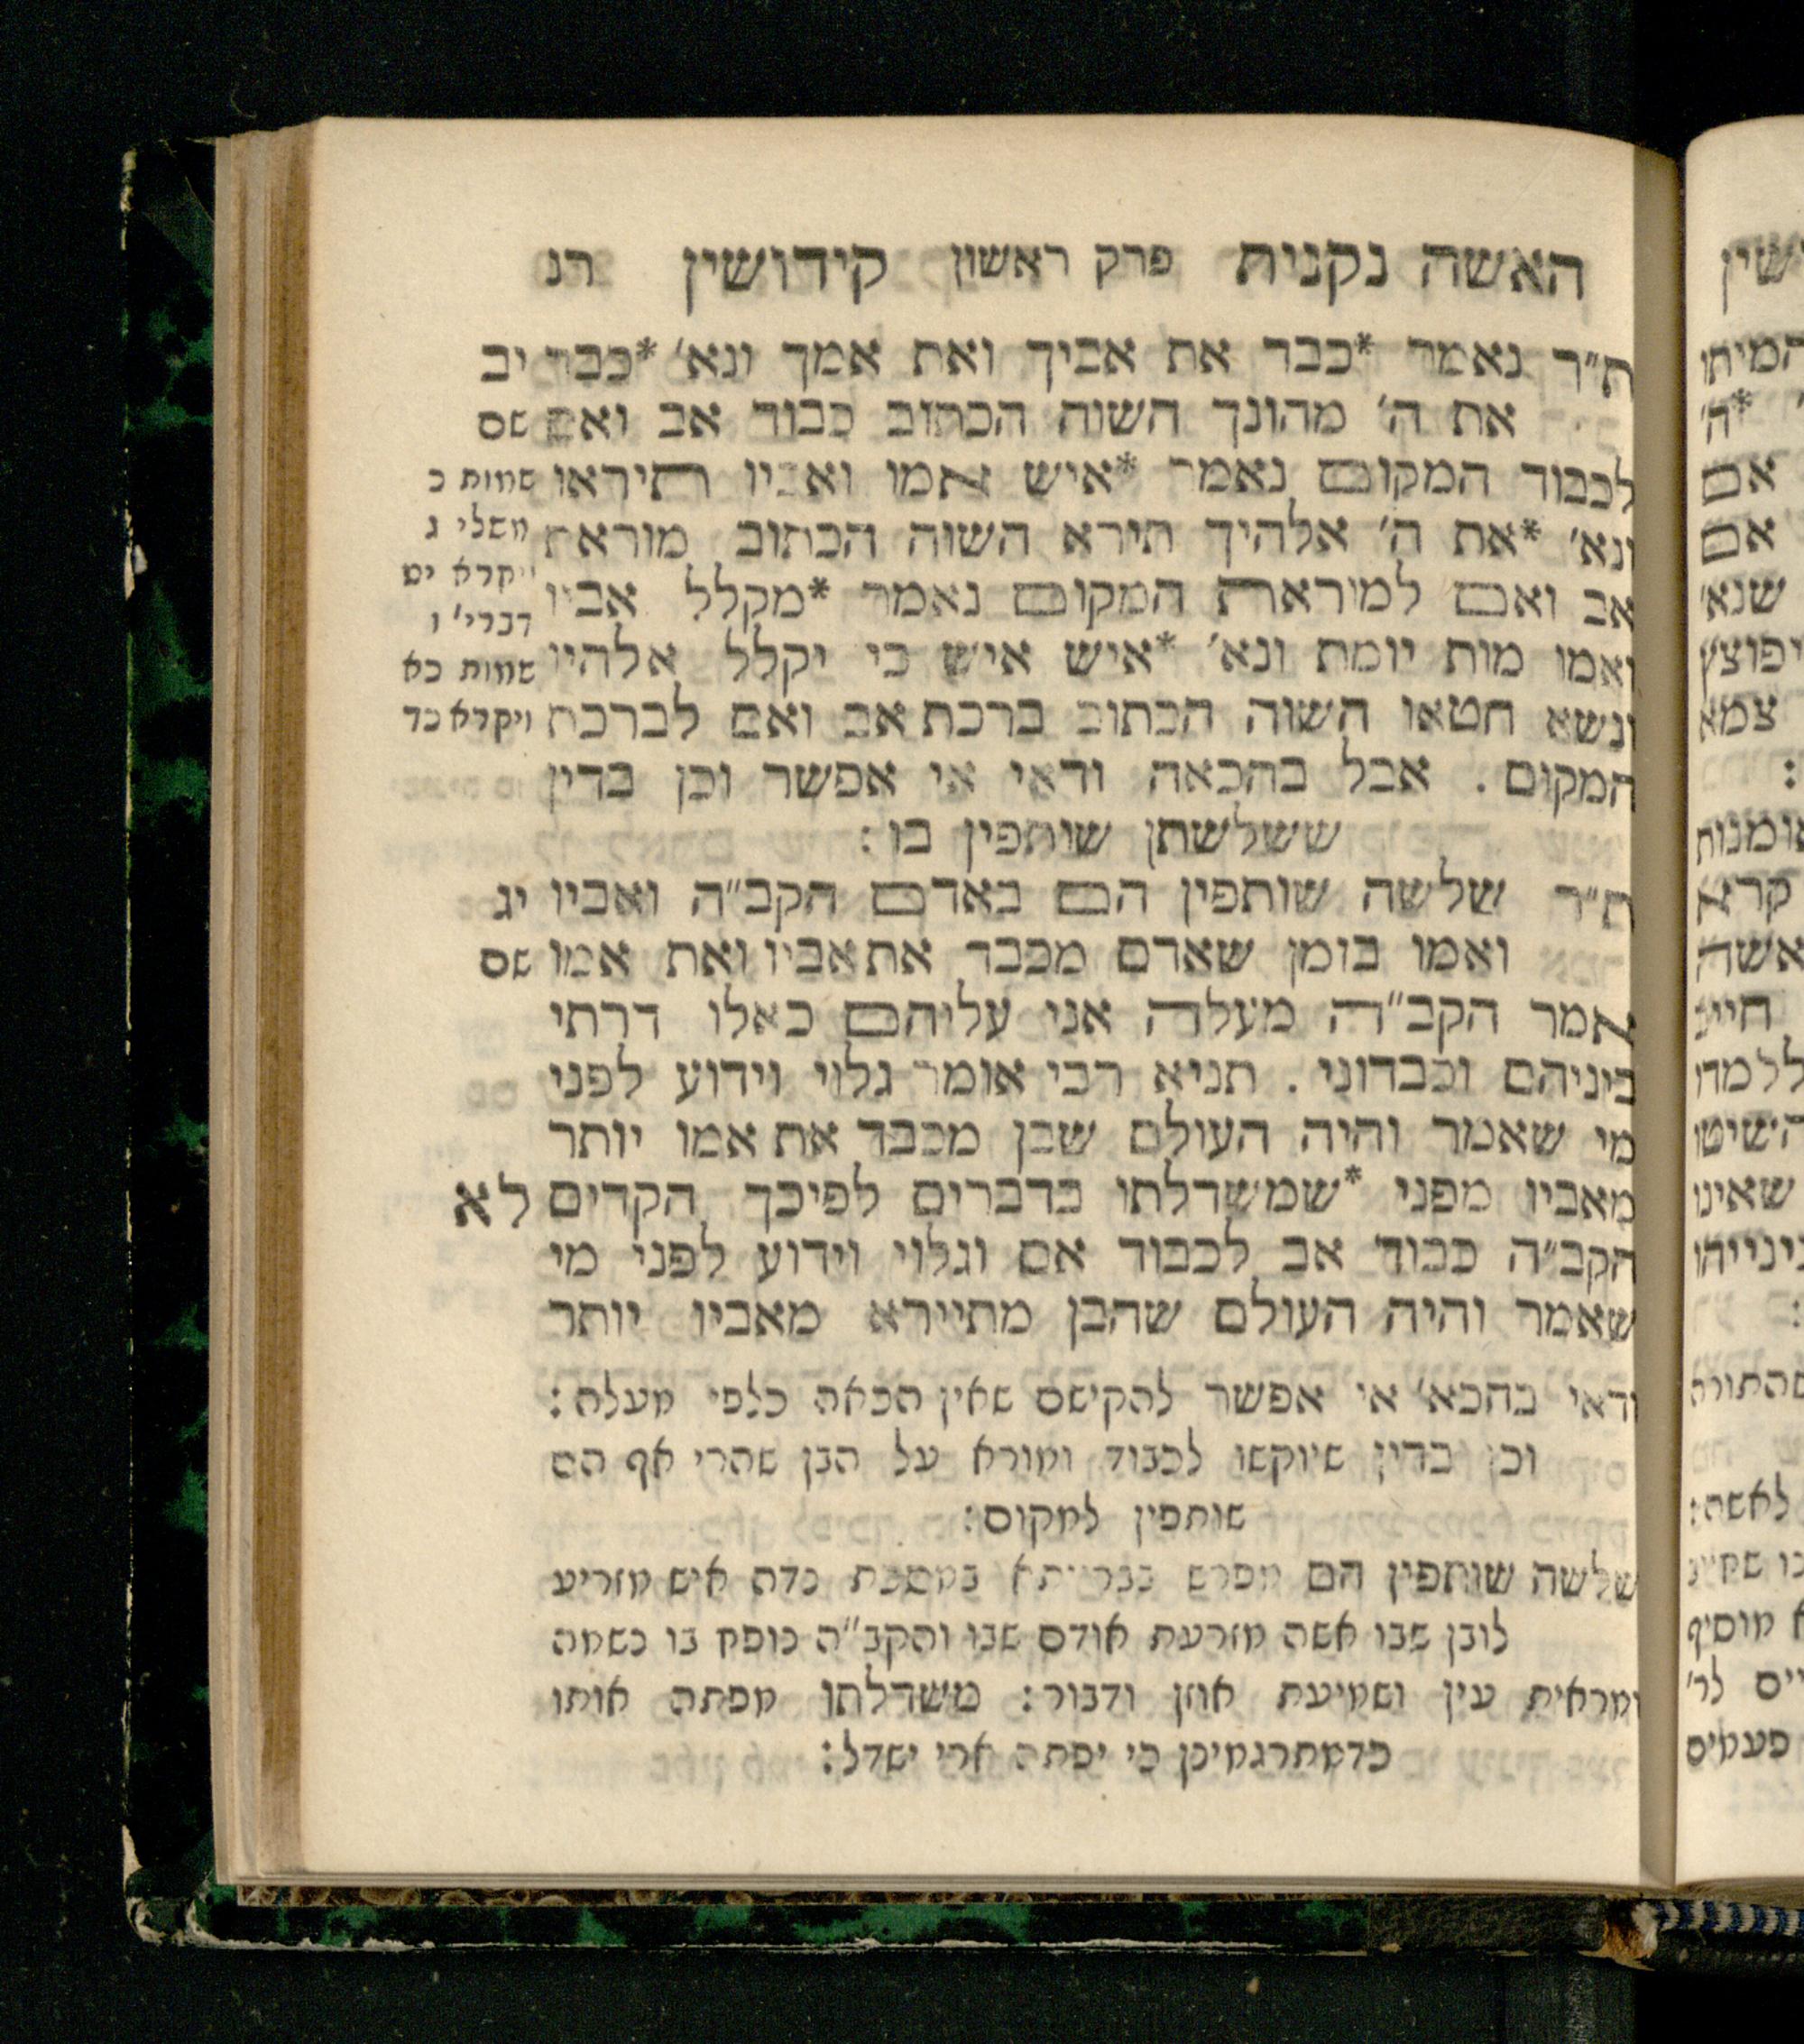 האשה נקנית פרק ראשון קידושין רנ
ת״ר נאמר *כבד את אביך ואת אמך ונא׳ *כבד יב
את ה׳ מהונך השוה הכתוב כבוד אב ואם שם
לכבוד המקום נאמר *איש אמו ואביו תיראו שמות כ
ונא׳ *את ה׳ אלהיך תירא השוה הכתוב מוראת משלי ג
אב ואם למוראת המקום נאמר *מקלל אביו ויקרא יט
דברי׳ ו
ואמו מות יומת ונא׳ *איש איש כי יקלל אלהיו שמות כא
ונשא חטאו השוה הכתוב ברכת אב ואם לברכת ויקרא כד
המקום . אבל בהכאה ודאי אי אפשר וכן בדין
ששלשתן שותפין בו :
ת״ר שלשה שותפין הם באדם הקב״ה ואביו יג
ואמו בזמן שאדם מכבד את אביו ואת אמו שם
אמר הקב״ה מעלה אני עליהם כאלו דרתי
ביניהם וכבדוני . תניא רבי אומר גלוי וידוע לפני
מי שאמר והיה העולם שבן מכבד את אמו יותר
מאביו מפני *שמשדלתו בדברים לפיכך הקדים לא
הקב״ה כבוד אב לכבוד אם וגלוי וידוע לפני מי
שאמר והיה העולם שהבן מתיירא מאביו יותר
ודאי בהכא׳ אי אפשר להקישם שאין הכאה כלפי מעלה :
וכן בדין שיוקשו לכבוד ומורא על הבן שהרי אף הם
שותפין למקום :
שלשה שותפין הם מפרש בברייתא במסכת נדה איש מזריע
לובן שבו אשה מזרעת אודם שבו והקב״ה נופח בו נשמה
ומראית עין ושמיעת אוזן ודבור : משדלתו מפתה אותו
כדמתרגמינן כי יפתה ארי ישדל :
שין
המיתו
*ה׳
אם
אם
שנא׳
יפוצץ
צמא
:
אומנות
קרא
אשה
השיטו
שאינו
:
שהתורה
לאשה :
א מוסיף
פעמים